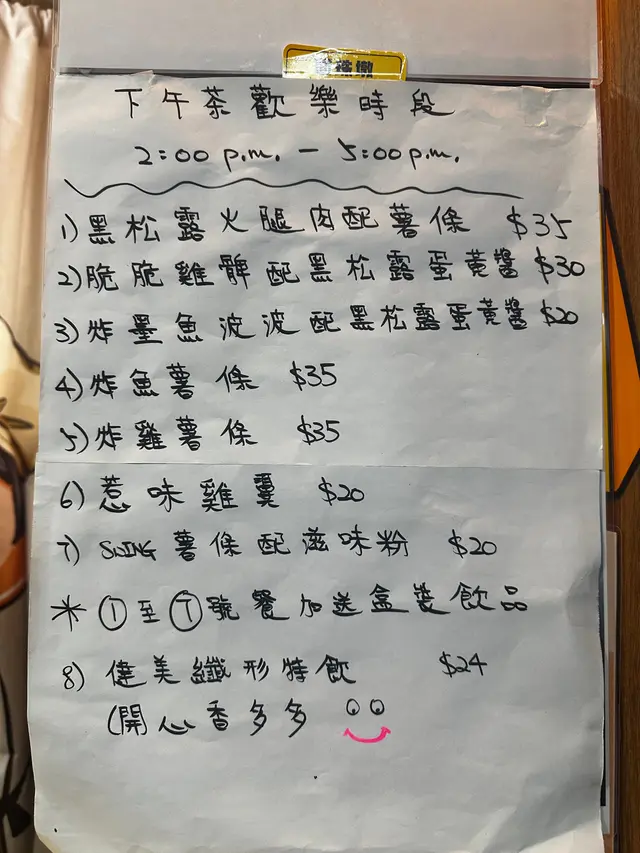 下午茶歡樂時段
2:00 p.m. - 5:00 p.m.
1) 黑松露火腿肉配薯條 $35
2) 脆脆雞髀配黑松露蛋黃醬 $30
3) 炸墨魚波波配黑松露蛋黃醬 $20
4) 炸魚薯條 $35
5) 炸雞薯條 $35
6) 惹味雞翼 $20
7) SWING 薯條配滋味粉 $20
* ① 至 ⑦ 號餐加送盒裝飲品
8) 健美纖形特飲 $24
(開心香多多